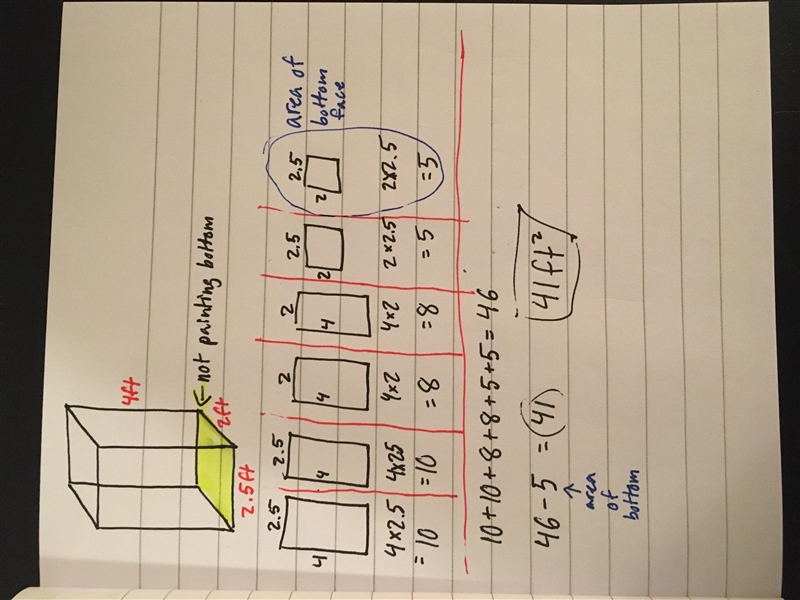 4ft
← not painting bottom
2ft
2.5ft
2.5
4
4×2.5
=10
2.5
4
4×25
=10
2
4
4×2
=8
2
4
4×2
=8
2.5
2
2×2.5
=5
2.5
2
2×2.5
=5
area of
bottom
face
10+10+8+8+5+5=46
46-5 = 41
↑
area
of
bottom
41ft²